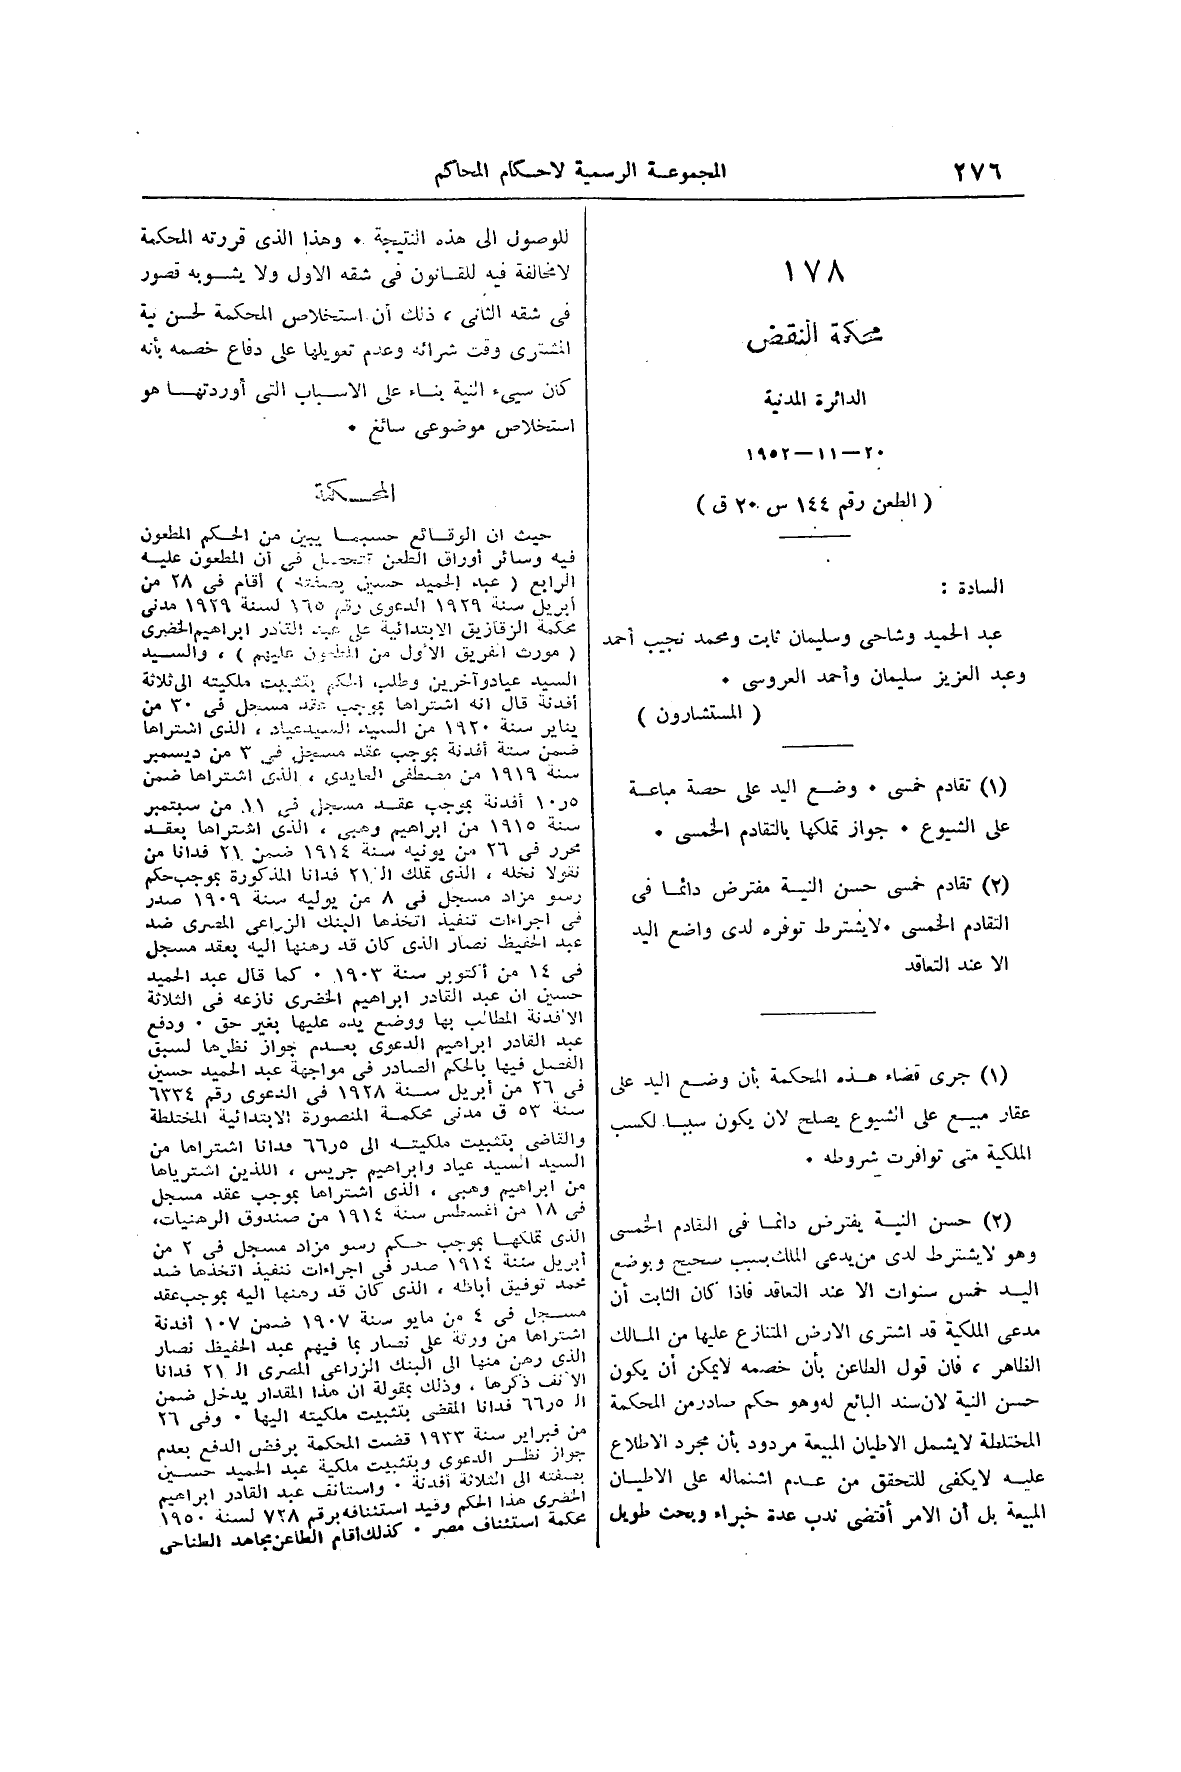 ٢٧٦
المجموعة الرسمية لاحكام المحاكم
١٧٨
محكمة النقض
الدائرة المدنية
٢٠—١١—١٩٥٢
( الطعن رقم ١٤٤ س ٢٠ ق )
السادة :
عبد الحميد وشاحى وسليمان ثابت ومحمد نجيب أحمد
وعبد العزيز سليمان وأحمد العروسى ٠
( المستشارون )
(١) تقادم خمسى ٠ وضع اليد على حصة مباعة
على الشيوع ٠ جواز تملكها بالتقادم الخمسى ٠
(٢) تقادم خمسى حسن النية مفترض دائما فى
التقادم الخمسى ٠ لايشترط توفره لدى واضع اليد
الا عند التعاقد
(١) جرى قضاء هذه المحكمة بأن وضع اليد على
عقار مبيع على الشيوع يصلح لان يكون سببا لكسب
الملكية متى توافرت شروطه ٠
(٢) حسن النية يفترض دائما فى التقادم الخمسى
وهو لايشترط لدى من يدعى الملك بسبب صحيح وبوضع
اليد خمس سنوات الا عند التعاقد فاذا كان الثابت أن
مدعى الملكية قد اشترى الارض المتنازع عليها من المالك
الظاهر ، فان قول الطاعن بأن خصمه لايمكن أن يكون
حسن النية لان سند البائع له وهو حكم صادر من المحكمة
المختلطة لايشمل الاطيان المبيعة مردود بأن مجرد الاطلاع
عليه لايكفى للتحقق من عدم اشتماله على الاطيان
المبيعة بل أن الامر أقتضى ندب عدة خبراء وبحث طويل
للوصول الى هذه النتيجة ٠ وهذا الذى قررته المحكمة
لامخالفة فيه للقانون فى شقه الاول ولا يشوبه قصور
فى شقه الثانى ، ذلك أن استخلاص المحكمة لحسن نية
المشترى وقت شرائه وعدم تعويلها على دفاع خصمه بأنه
كان سيىء النية بناء على الاسباب التى أوردتها هو
استخلاص موضوعى سائغ ٠
المحكمة
حيث ان الوقائع حسبما يبين من الحكم المطعون
فيه وسائر أوراق الطعن تتحصل فى أن المطعون عليه
الرابع ( عبد الحميد حسين بصفته ) أقام فى ٢٨ من
أبريل سنة ١٩٢٩ الدعوى رقم ١٦٥ لسنة ١٩٢٩ مدنى
محكمة الزقازيق الابتدائية على عبد القادر ابراهيم الخضرى
( مورث الفريق الأول من المطعون عليهم ) ، والسيد
السيد عياد وآخرين وطلب الحكم بتثبيت ملكيته الى ثلاثة
أفدنة قال انه اشتراها بموجب عقد مسجل فى ٣٠ من
يناير سنة ١٩٢٠ من السيد السيد عياد ، الذى اشتراها
ضمن ستة أفدنة بموجب عقد مسجل فى ٣ من ديسمبر
سنة ١٩١٩ من مصطفى العايدى ، الذى اشتراها ضمن
١٠٫٥ أفدنة بموجب عقد مسجل فى ١١ من سبتمبر
سنة ١٩١٥ من ابراهيم وهبى ، الذى اشتراها بعقد
محرر فى ٢٦ من يونيه سنة ١٩١٤ ضمن ٢١ فدانا من
نقولا نخله ، الذى تملك الـ ٢١ فدانا المذكورة بموجب حكم
رسو مزاد مسجل فى ٨ من يوليه سنة ١٩٠٩ صدر
فى اجراءات تنفيذ اتخذها البنك الزراعى المصرى ضد
عبد الحفيظ نصار الذى كان قد رهنها اليه بعقد مسجل
فى ١٤ من أكتوبر سنة ١٩٠٣ ٠ كما قال عبد الحميد
حسين ان عبد القادر ابراهيم الخضرى نازعه فى الثلاثة
الافدنة المطالب بها ووضع يده عليها بغير حق ٠ ودفع
عبد القادر ابراهيم الدعوى بعدم جواز نظرها لسبق
الفصل فيها بالحكم الصادر فى مواجهة عبد الحميد حسين
فى ٢٦ من أبريل سنة ١٩٢٨ فى الدعوى رقم ٦٣٣٤
سنة ٥٣ ق مدنى محكمة المنصورة الابتدائية المختلطة
والقاضى بتثبيت ملكيته الى ٦٦٫٥ فدانا اشتراها من
السيد السيد عياد وابراهيم جريس ، اللذين اشترياها
من ابراهيم وهبى ، الذى اشتراها بموجب عقد مسجل
فى ١٨ من أغسطس سنة ١٩١٤ من صندوق الرهنيات،
الذى تملكها بموجب حكم رسو مزاد مسجل فى ٢ من
أبريل سنة ١٩١٤ صدر فى اجراءات تنفيذ اتخذها ضد
محمد توفيق أباظه ، الذى كان قد رهنها اليه بموجب عقد
مسجل فى ٤ من مايو سنة ١٩٠٧ ضمن ١٠٧ أفدنة
اشتراها من ورثة على نصار بما فيهم عبد الحفيظ نصار
الذى رهن منها الى البنك الزراعى المصرى الـ ٢١ فدانا
الآنف ذكرها ، وذلك بمقولة ان هذا المقدار يدخل ضمن
الـ ٦٦٫٥ فدانا المقضى بتثبيت ملكيته اليها ٠ وفى ٢٦
من فبراير سنة ١٩٣٣ قضت المحكمة برفض الدفع بعدم
جواز نظر الدعوى وبتثبيت ملكية عبد الحميد حسين
بصفته الى الثلاثة أفدنة ٠ واستأنف عبد القادر ابراهيم
الخضرى هذا الحكم وقيد استئنافه برقم ٧٢٨ لسنة ١٩٥٠
محكمة استئناف مصر ٠ كذلك أقام الطاعن مجاهد الطناحى